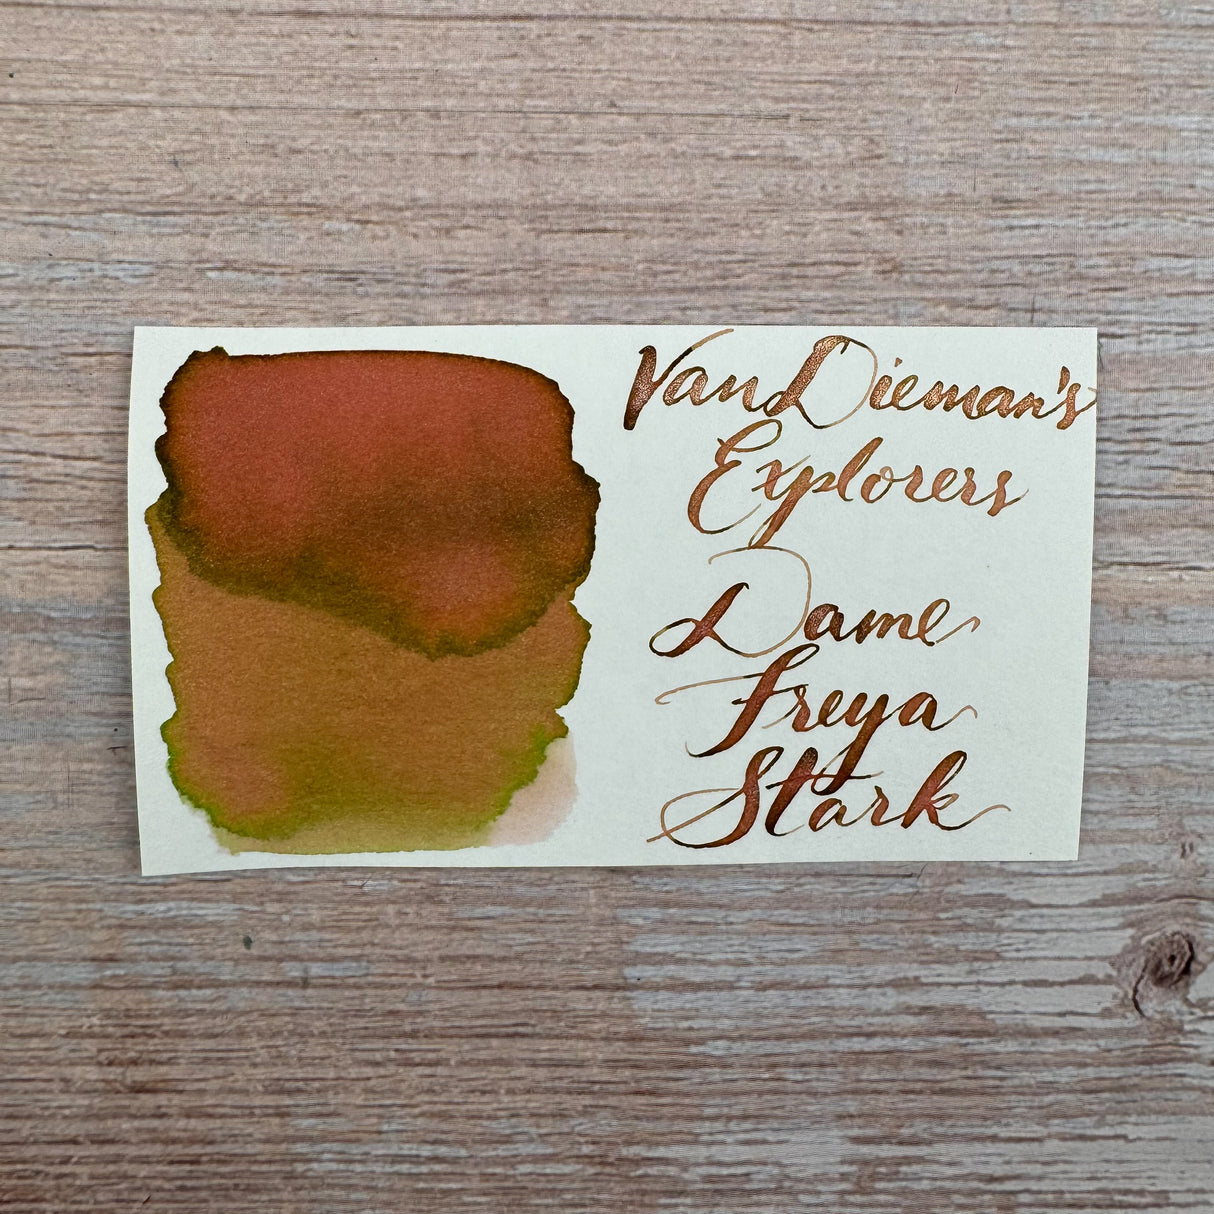 Van Dieman's
Explorers
Dame
Freya
Stark